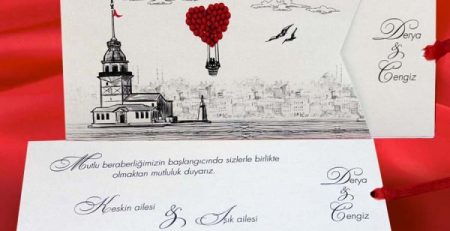 Derya
&
Cengiz
Mutlu beraberliğimizin başlangıcında sizlerle birlikte
olmaktan mutluluk duyarız.
Keskin ailesi & Işık ailesi
Derya
&
Cengiz